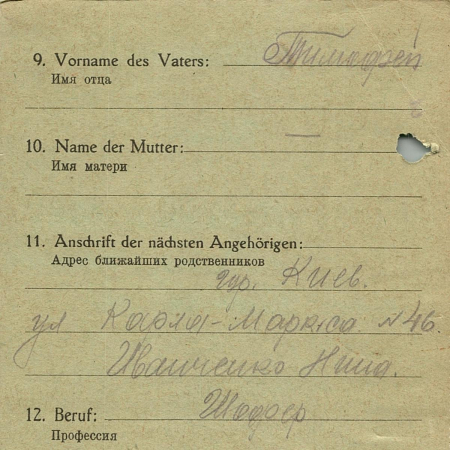 9. Vorname des Vaters: Тимофей
Имя отца
10. Name der Mutter: —
Имя матери
11. Anschrift der nächsten Angehörigen:
Адрес ближайших родственников
гор. Киев.
ул Карла-Маркса №46.
Иванченко Нина.
12. Beruf: Шофер
Профессия